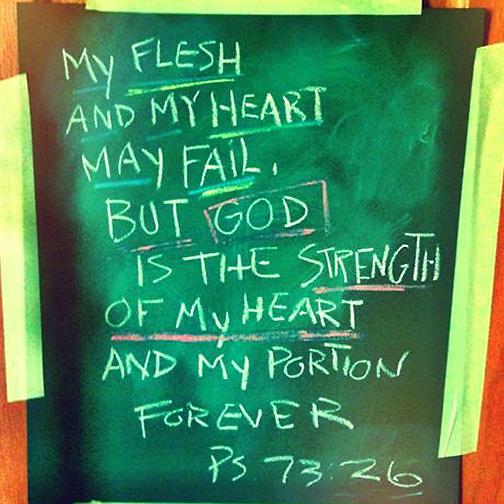 MY FLESH
AND MY HEART
MAY FAIL,
BUT GOD
IS THE STRENGTH
OF MY HEART
AND MY PORTION
FOREVER
PS 73:26